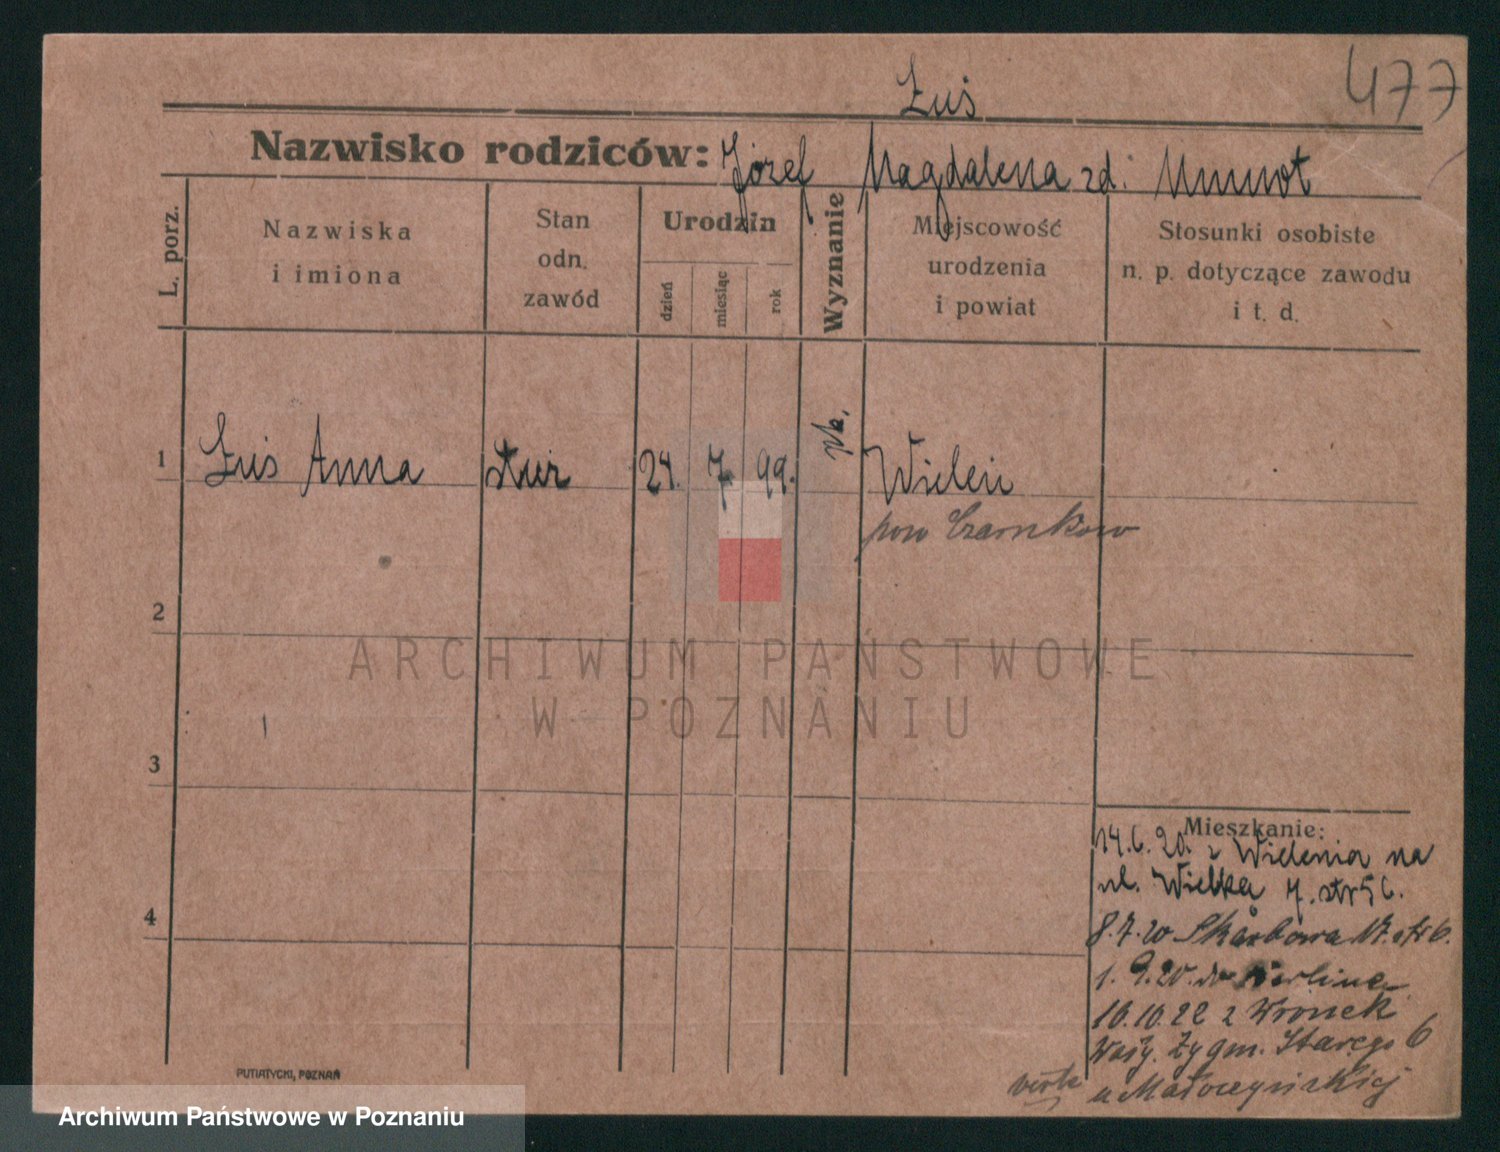 477
Żuś
Nazwisko rodziców: Józef Magdalena zd.
L. porz.
Nazwiska i imiona
Stan odn. zawód
Urodzin
dzień
miesiąc
rok
Wyznanie
Miejscowość urodzenia i powiat
Stosunki osobiste n. p. dotyczące zawodu i t. d.
1 Żuś Anna służ 24. 7 99. rk. Wieleń
pow Czarnków
2
ARCHIWUM PAŃSTWOWE
W POZNANIU
3
Mieszkanie:
14.6.20. z Wielenia na
ul. Wielką 7. str 56.
4
8.7.20 Skarbowa 17. str 6.
1.9.20. do Berlina
16.10.22 z Wronek
Wały Zygm. Starego 6
u
verte
PUTIATYCKI, POZNAŃ
Archiwum Państwowe w Poznaniu